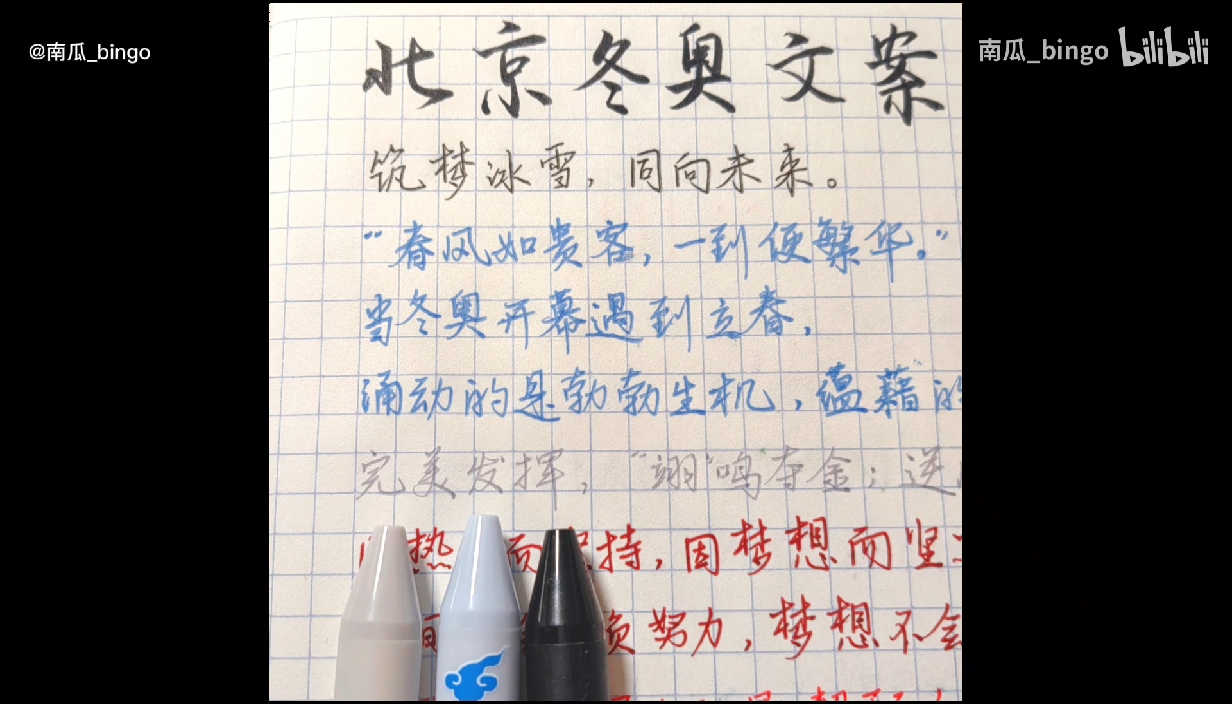 @南瓜_bingo
南瓜_bingo bilibili
北京冬奥文案
筑梦冰雪，同向未来。
“春风如贵客，一到便繁华。”
当冬奥开幕遇到立春，
涌动的是勃勃生机，蕴藉的
完美发挥，“翊”鸣夺金；逆
热 而 持，因梦想而坚
负努力，梦想不会